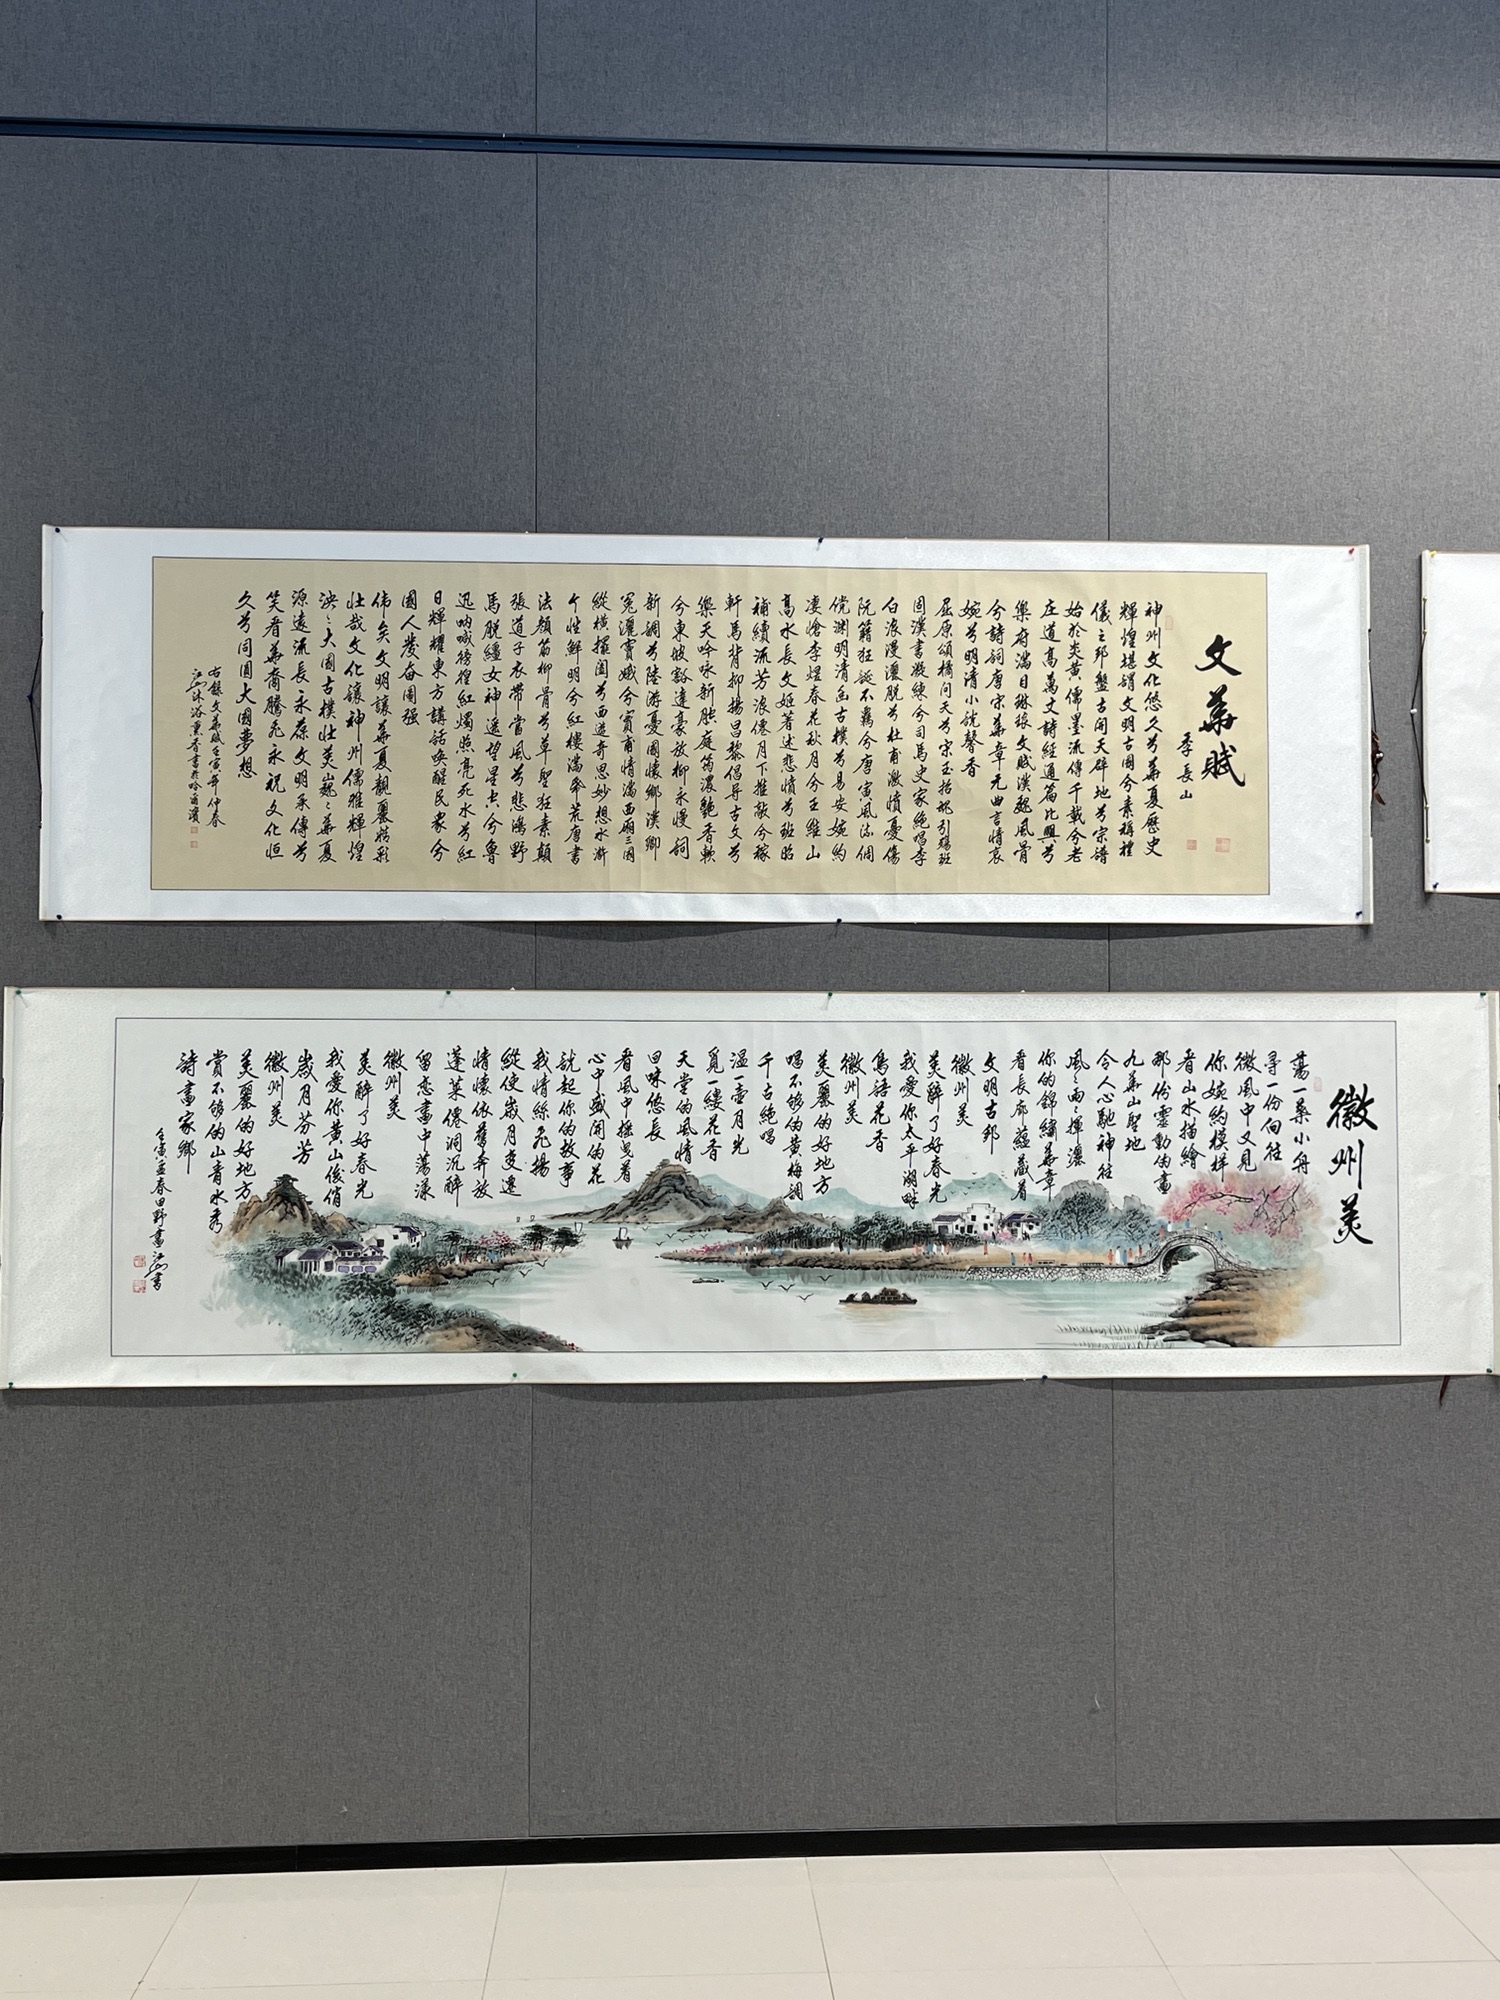 文華賦
季長山
神州文化悠久兮華夏歷史
輝煌堪謂文明古國兮素稱禮
儀之邦盤古開天辟地兮宗譜
始於炎黃儒墨流傳千載兮老
庄道高萬丈詩經通篇比興兮
樂府滿目琳琅文賦漢魏風骨
兮詩詞唐宋華章元曲言情哀
婉兮明清小說馨香
屈原頌橘問天兮宋玉招魂引殤班
固漢書凝練兮司馬史家絕唱李
白浪漫灑脫兮杜甫激憤憂傷
阮籍狂誕不羈兮唐寅風流倜
儻淵明清幽古樸兮易安婉約
凄愴李煜春花秋月兮王維山
高水長文姬著述悲憤兮班昭
補續流芳浪僊月下推敲兮稼
軒馬背抑揚昌黎倡导古文兮
樂天吟咏新腔庭筠濃艷香軟
兮東坡豁達豪放柳永慢詞
新調兮陸游憂國懷鄉漢卿
冤灑竇娥兮實甫情滿西廂三國
縱橫擢闔兮西遊奇思妙想水滸
个性鮮明兮紅樓滿希荒唐書
法顏筋柳骨兮草聖狂素顛
張道子衣帶當風兮悲鴻野
馬脫繮女神遥望星空兮魯
迅吶喊彷徨紅燭照亮死水兮紅
日輝耀東方講話喚醒民衆兮
國人發奋圖强
偉矣文明讓華夏靚麗精彩
壮哉文化讓神州儒雅輝煌
泱々大國古樸壯美巍々華夏
源遠流長永葆文明承傳兮
笑看華裔騰飛永祝文化恒
久兮同圓大國夢想
右錄文華賦壬寅年仲春
江山沐浴薰香書於哈爾濱
徽州美
蕩一葉小舟
尋一份向往
微風中又見
你婉約模样
看山水描繪
那份靈動的畫
九華山聖地
令人心馳神往
風々雨々揮灑
你的錦繡華章
看長廊蘊藏着
文明古邦
徽州美
美醉了好春光
我愛你太平湖畔
鳥語花香
徽州美
美麗的好地方
唱不够的黃梅調
千古絕唱
温一壺月光
覓一縷花香
天堂的風情
回味悠長
看風中摇曳着
心中盛開的花
說起你的故事
我情絲飛揚
縱使歲月变遷
情懷依舊奔放
蓬莱僊洞沉醉
留恋畫中蕩漾
徽州美
美醉了好春光
我愛你黃山俊俏
歲月芬芳
徽州美
美麗的好地方
賞不够的山青水秀
詩畫家鄉
壬寅孟春田野畫江山書